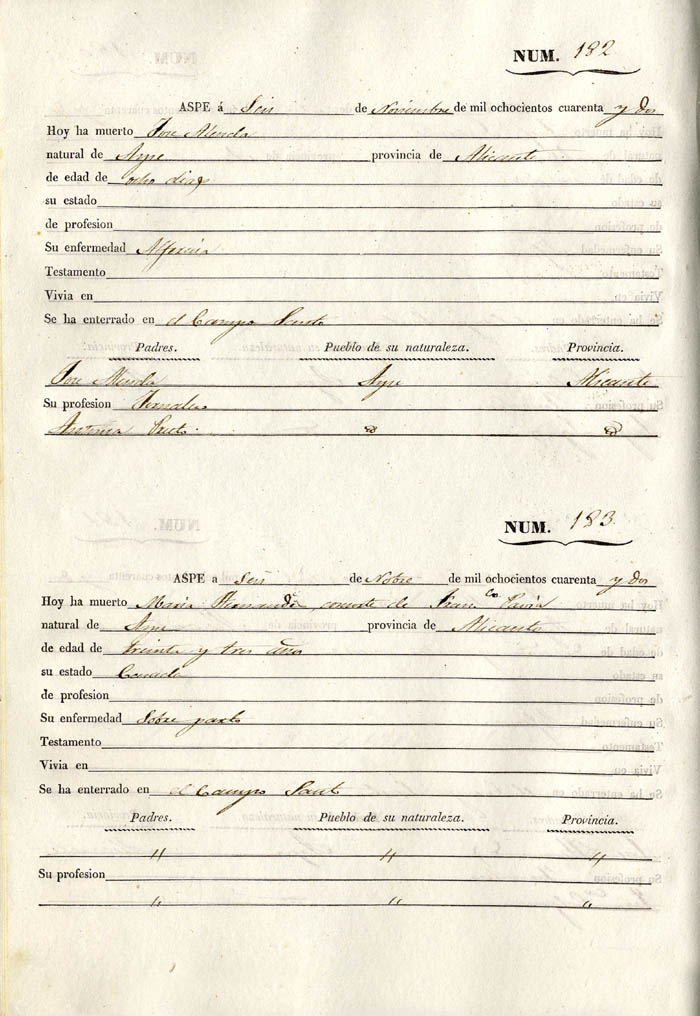 NUM. 182
ASPE á Seis de Noviembre de mil ochocientos cuarenta y dos
Hoy ha muerto Jose
natural de Aspe provincia de Alicante
de edad de ocho dias
su estado
de profesion
Su enfermedad Alferecia
Testamento
Vivia en
Se ha enterrado en el Campo Santo
Padres. Pueblo de su naturaleza. Provincia.
Jose Aspe Alicante
Su profesion Jornalero
Antonia
NUM. 183.
ASPE a Seis de Nobre de mil ochocientos cuarenta y dos
Hoy ha muerto Maria Hernandez consorte de Franco.
natural de Aspe provincia de Alicante
de edad de treinta y tres años
su estado Casada
de profesion
Su enfermedad Sobre parto
Testamento
Vivia en
Se ha enterrado en el Campo Santo
Padres. Pueblo de su naturaleza. Provincia.
" " "
Su profesion
" " "